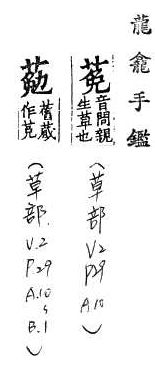 龍龕手鑑
莬音問親生草也
（草部 V2 P29 A.10）
葂舊藏作莬
（草部 V.2 P.29 A.10 ~ B.1）